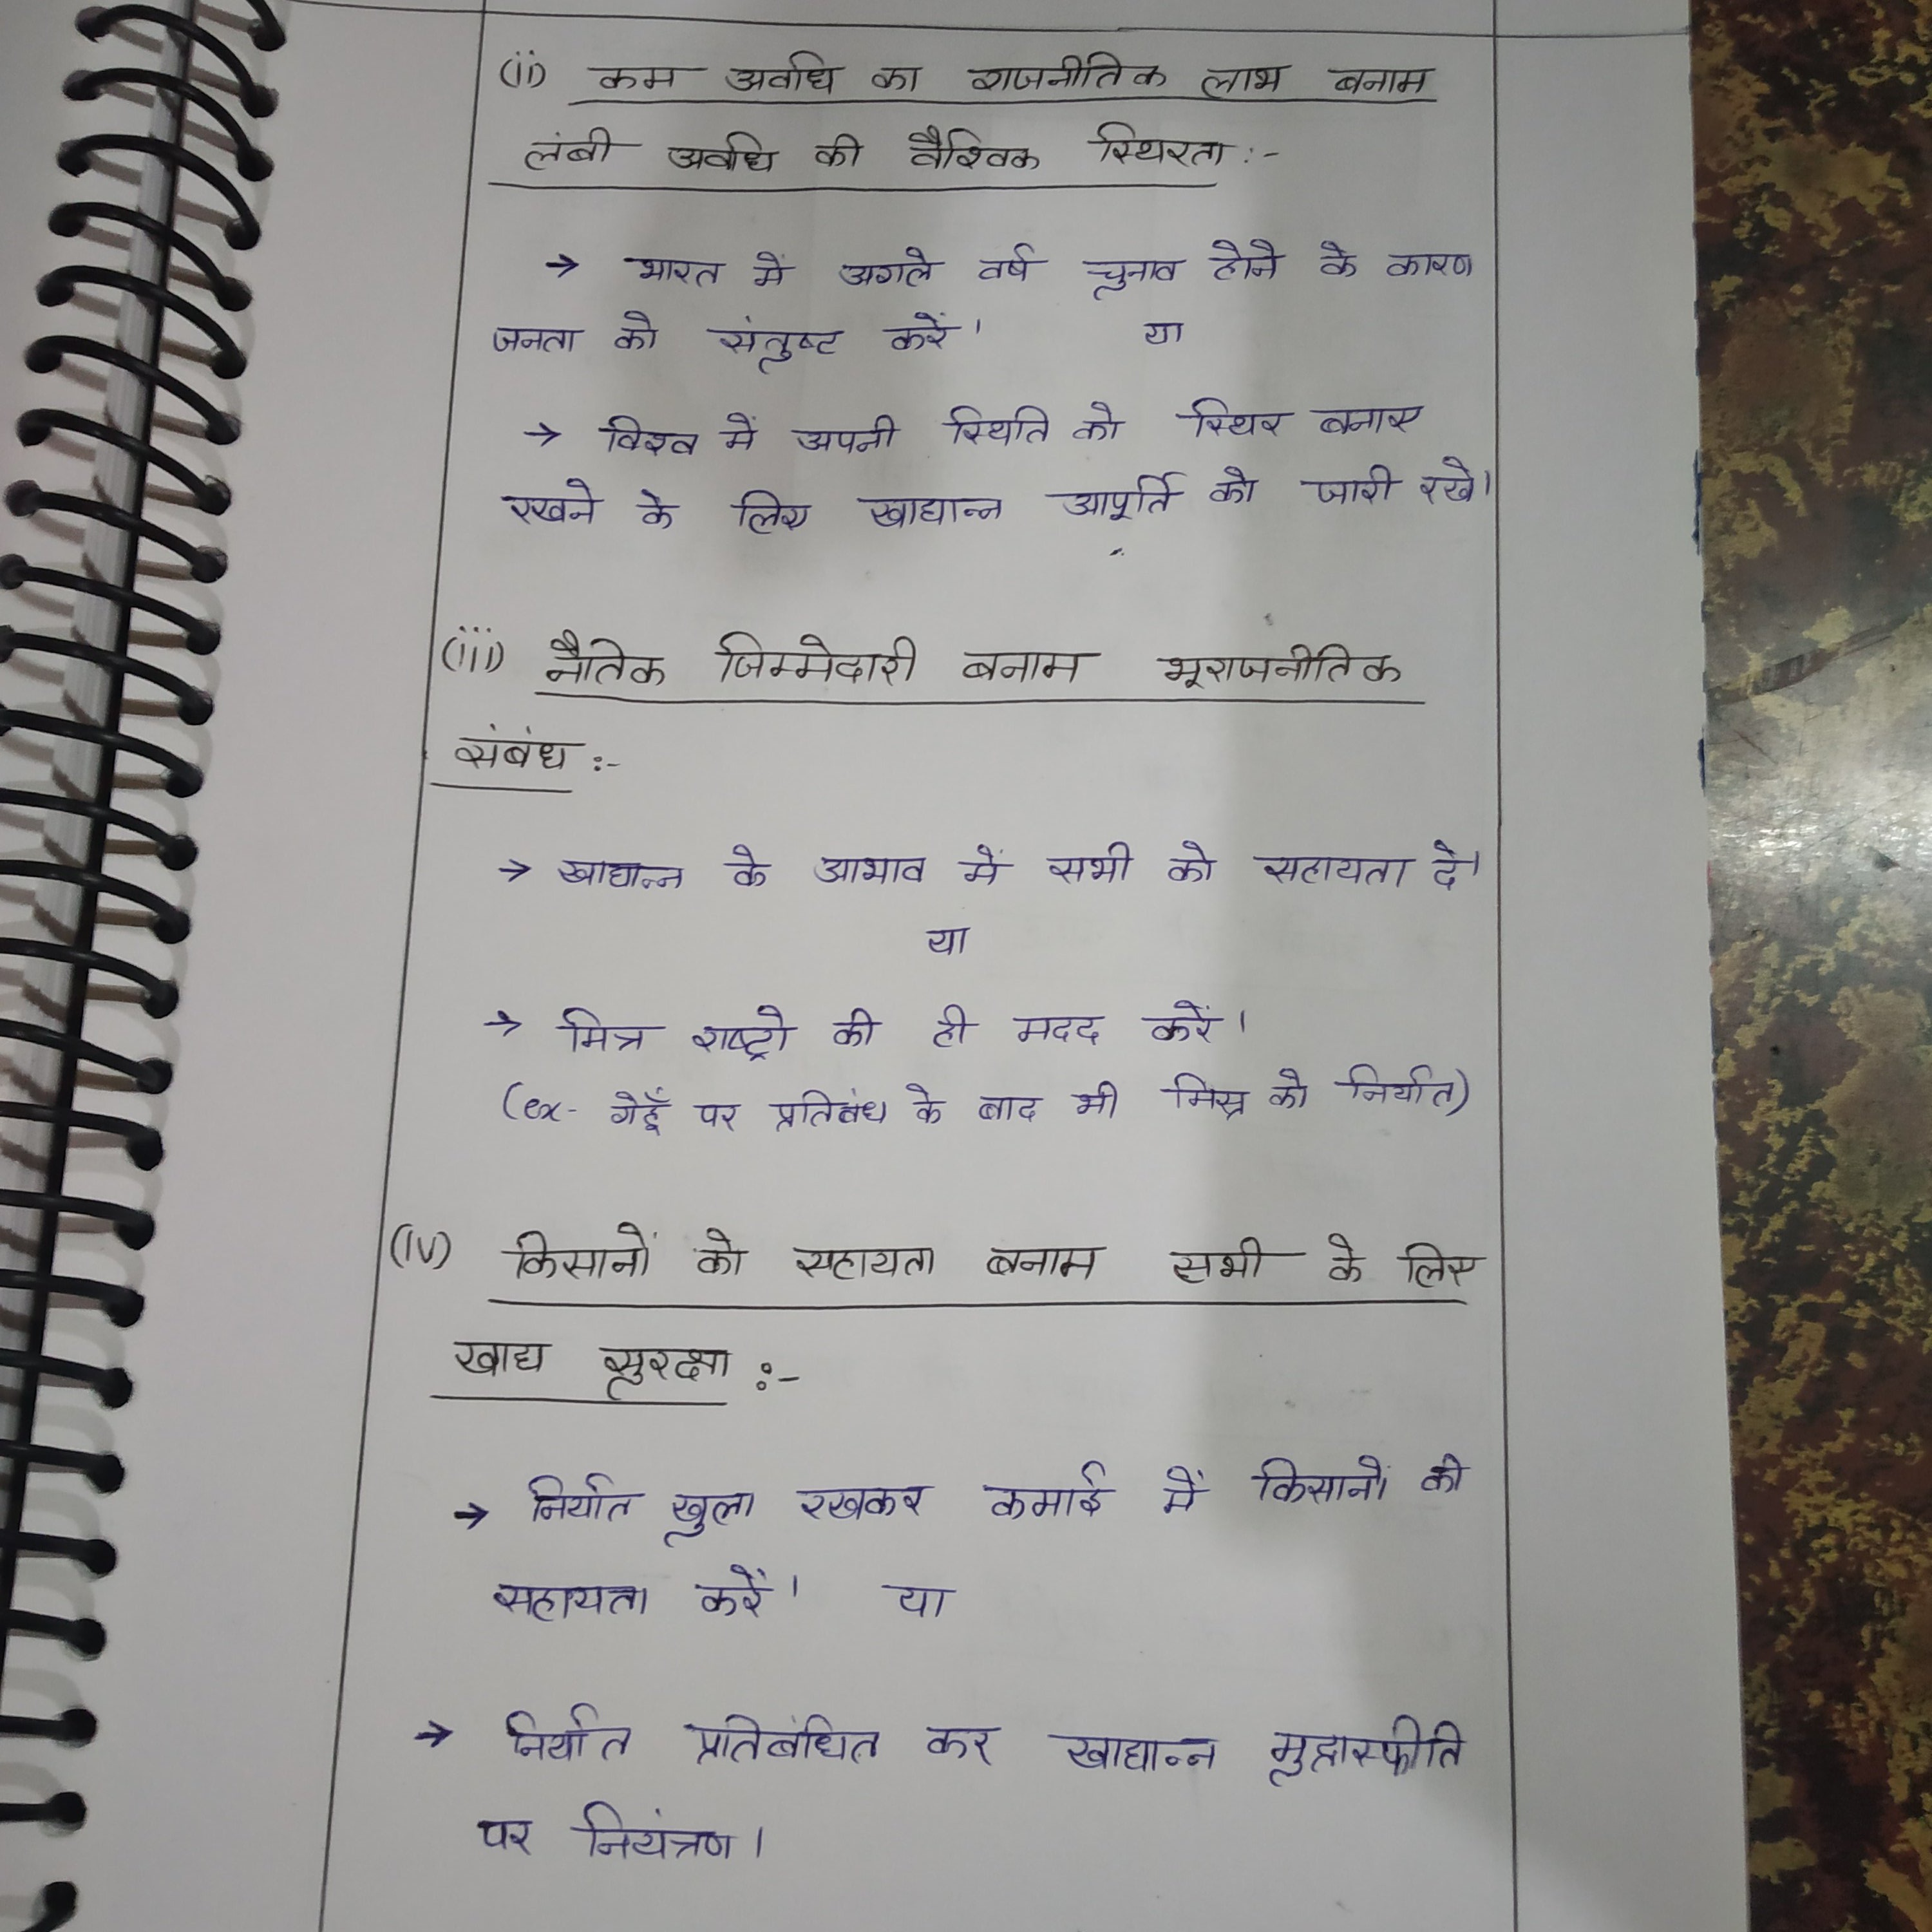 (ii) कम अवधि का राजनीतिक लाभ बनाम
लंबी अवधि की वैश्विक स्थिरता :-
→ भारत में अगले वर्ष चुनाव होने के कारण
जनता को संतुष्ट करें। या
→ विश्व में अपनी स्थिति को स्थिर बनाए
रखने के लिए खाद्यान्न आपूर्ति को जारी रखे।
(iii) नैतिक जिम्मेदारी बनाम भूराजनीतिक
संबंध :-
→ खाद्यान्न के आभाव में सभी को सहायता दे।
या
→ मित्र राष्ट्रो की ही मदद करें।
(ex- गेहूँ पर प्रतिबंध के बाद भी मिस्र को निर्यात)
(iv) किसानों को सहायता बनाम सभी के लिए
खाद्य सुरक्षा :-
→ निर्यात खुला रखकर कमाई में किसानों की
सहायता करें। या
→ निर्यात प्रतिबंधित कर खाद्यान्न मुद्रास्फीति
पर नियंत्रण।